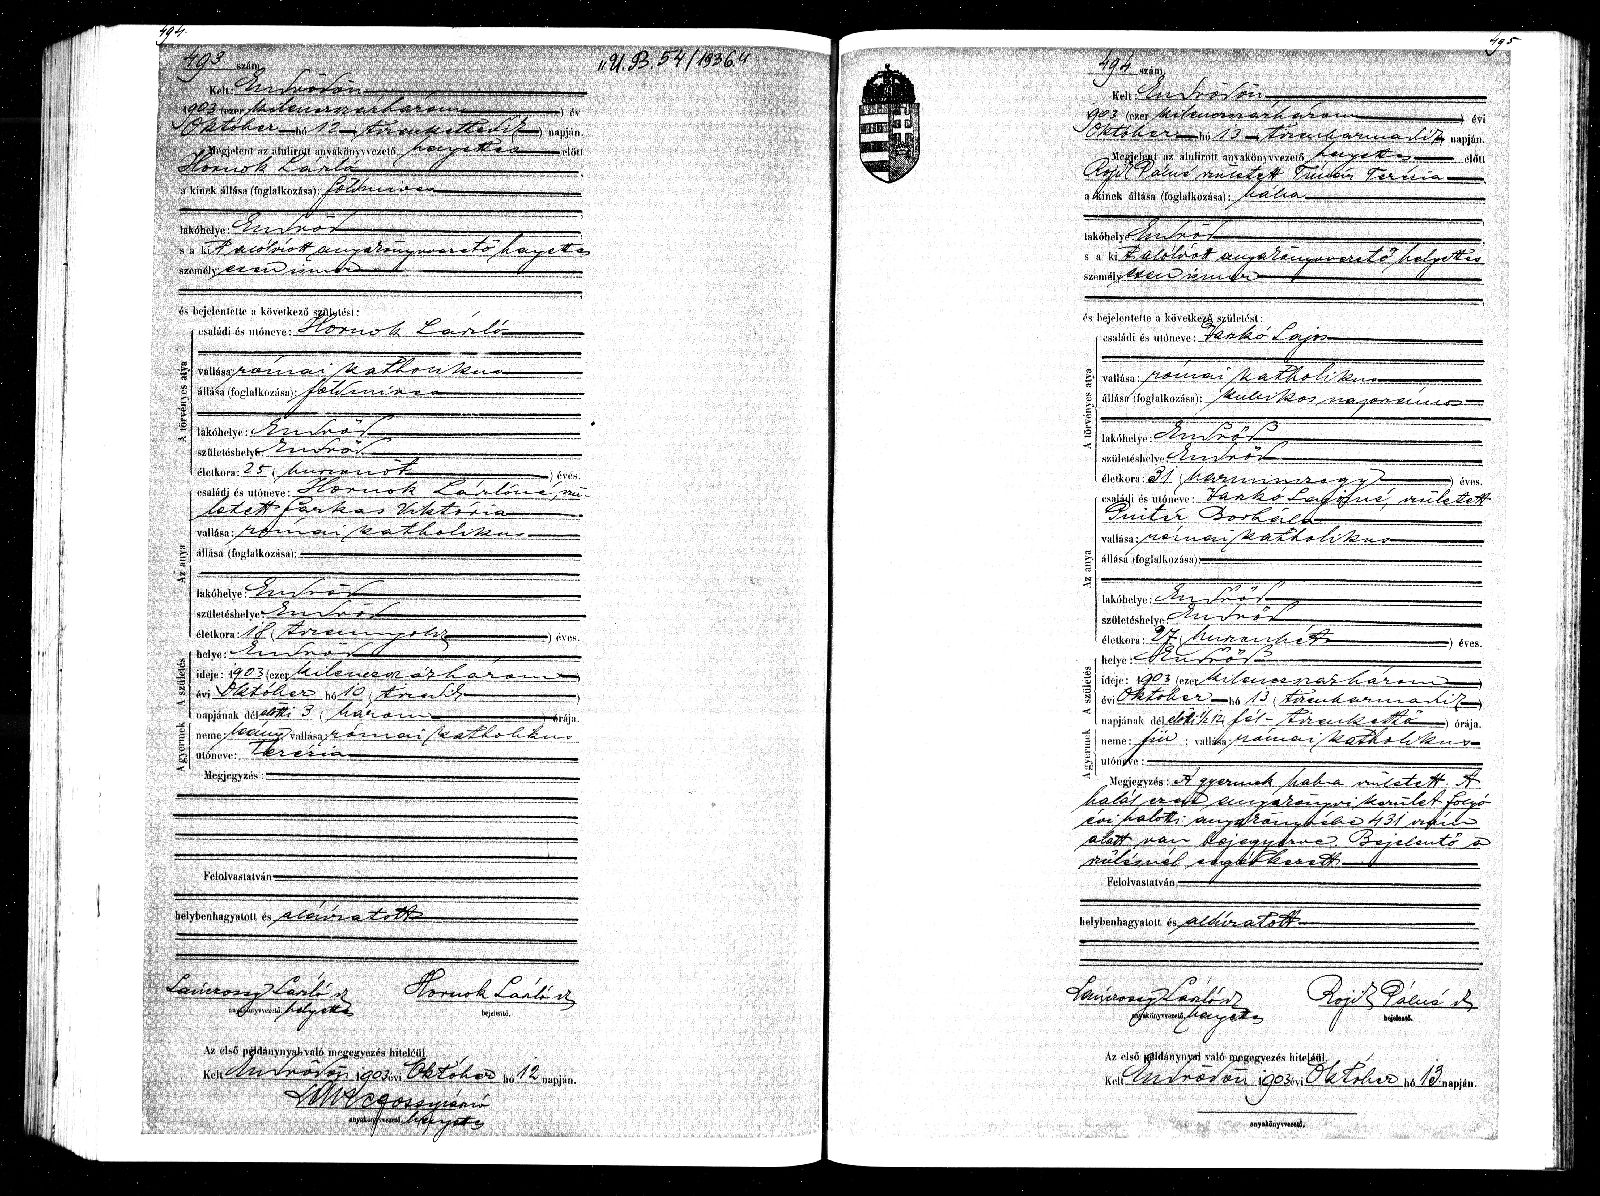 494
493 szám
"U. B. 54/1936."
Kelt: Endrődön
1903 (ezer kilenczszázhárom) év
Október hó 12 tizenkettedik) napján.
Megjelent az alulirott anyakönyvvezető helyettes előtt
Hornok László
a kinek állása (foglalkozása): földmíves
lakóhelye: Endrőd
s a kit alólírott anyakönyvvezető helyettes
személyesen ismer
és bejelentette a következő születést:
A törvényes atya
családi és utóneve: Hornok László
vallása: római katholikus
állása (foglalkozása): földmíves
lakóhelye: Endrőd
születéshelye: Endrőd
életkora: 25 (huszonöt) éves.
Az anya
családi és utóneve: Hornok Lászlóné, szü-
letett Farkas Viktória
vallása: római katholikus
állása (foglalkozása):
lakóhelye: Endrőd
születéshelye: Endrőd
életkora: 18 (tizennyolcz) éves.
A születés
helye: Endrőd
ideje: 1903 (ezer kilenczszázhárom)
évi Október hó 10 (tizedik)
napjának dél előtti 3 (három) órája.
A gyermek
neme: leány; vallása: római katholikus
utóneve: Terézia
Megjegyzés:
Felolvastatván
helybenhagyatott és aláíratott
László
anyakönyvvezető. helyettes
Hornok László
bejelentő.
Az első példánynyal való megegyezés hiteléül
Kelt Endrődön 1903 évi Október hó 12 napján.
anyakönyvvezető. helyettes
495
494 szám
Kelt: Endrődön
1903 (ezer kilenczszázhárom) évi
Október hó 13 tizenharmadik napján.
Megjelent az alulirott anyakönyvvezető helyettes előtt
Rojik Pálné született Tímár Terézia
a kinek állása (foglalkozása): bába
lakóhelye: Endrőd
s a kit alólírott anyakönyvvezető helyettes
személyesen ismer
és bejelentette a következő születést:
A törvényes atya
családi és utóneve: Vaskó Lajos
vallása: római katholikus
állása (foglalkozása): kubikos napszámos
lakóhelye: Endrőd
születéshelye: Endrőd
életkora: 31 (harminczegy) éves.
Az anya
családi és utóneve: Vaskó Lajosné, született
Pintér Borbála
vallása: római katholikus
állása (foglalkozása):
lakóhelye: Endrőd
születéshelye: Endrőd
életkora: 27 (huszonhét) éves.
A születés
helye: Endrőd
ideje: 1903 (ezer kilenczszázhárom)
évi Október hó 13 (tizenharmadik)
napjának dél előtti ½12 (fél-tizenkettő) órája.
A gyermek
neme: fiú; vallása: római katholikus
utóneve:
Megjegyzés: A gyermek halva született. A
halál ezen anyakönyvi kerület folyó
évi halotti anyakönyvébe 431 szám
alatt van bejegyezve. Bejelentő a
szülésnél segédkezett
Felolvastatván,
helybenhagyatott és aláíratott
László
anyakönyvvezető. helyettes
Rojik Pálné
bejelentő.
Az első példánynyal való megegyezés hiteléül.
Kelt Endrődön 1903 évi Október hó 13 napján.
anyakönyvvezető.